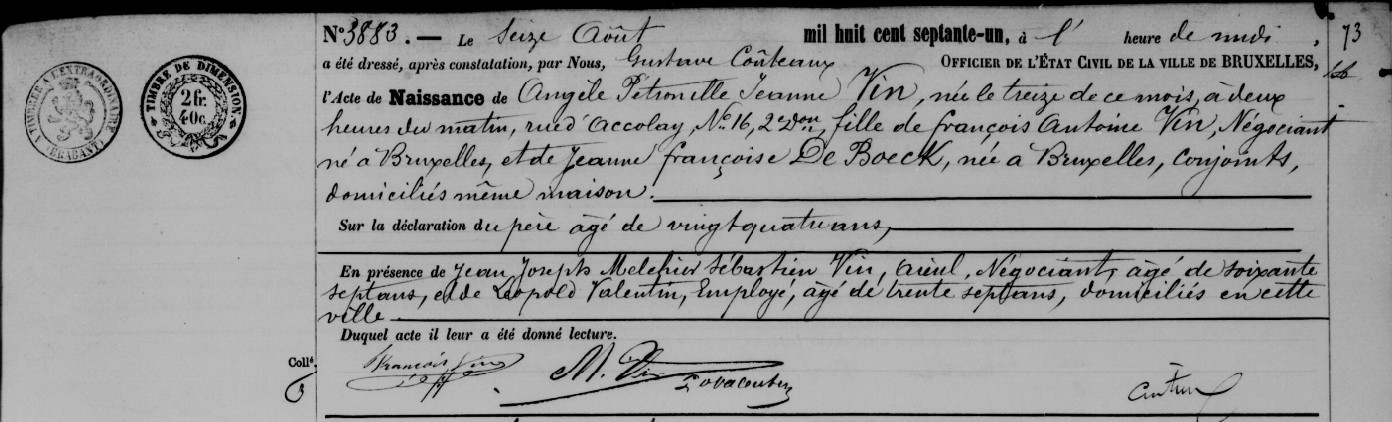 TIMBRE À L'EXTRAORDINAIRE (BRABANT)
TIMBRE DE DIMENSION.
2 fr.
40 c.
N° 3883. — Le Seize Août mil huit cent septante-un, à l' heure de midi, 73
a été dressé, après constatation, par Nous, Gustave Coûteaux Officier de l'État Civil de la ville de BRUXELLES,
l'Acte de Naissance de Angèle Pétronille Jeanne Vin, née le treize de ce mois, à deux
heures du matin, rue d'Accolay, N° 16, 2e Don, fille de françois Antoine Vin, Négociant
né à Bruxelles, et de Jeanne françoise De Boeck, née à Bruxelles, conjoints,
domiciliés même maison.
Sur la déclaration du père âgé de vingtquatre ans,
En présence de Jean Joseph Melchior Sébastien Vin, aïeul, Négociant, âgé de soixante
sept ans, et de Léopold Valentin, Employé, âgé de trente sept ans, domiciliés en cette
ville
Duquel acte il leur a été donné lecture.
Collé.
François Vin
M. Vin